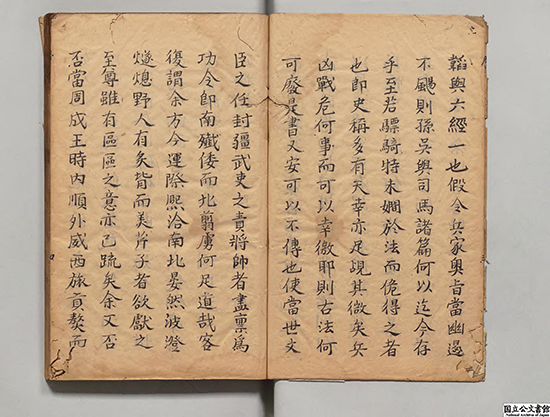 韜與六經一也假令兵家奧旨當幽遏
不颺則孫吳與司馬諸篇何以迄今存
乎至若驃騎特未嫺於法而佹得之者
也即史稱多有天幸亦足覘其微矣兵
凶戰危何事而可以幸徼耶則古法何
可廢是書又安可以不傳也使當世文
臣之任封疆武吏之責將帥者盡稟為
功令即南殲倭而北翦虜何足道哉客
復謂余方今運際熙洽南北晏然波澄
燧熄野人有炙背而美芹子者欲獻之
至尊雖有區區之意亦已疏矣余又否
否當周成王時內順外威西旅貢獒而
国立公文書館
National Archives of Japan